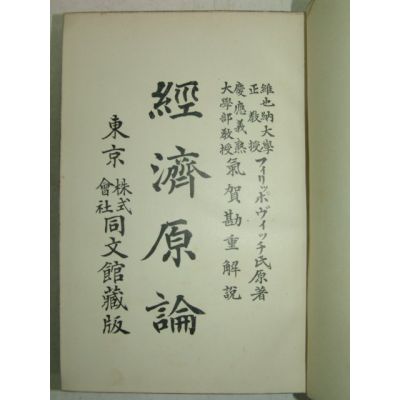 維也納大學
正教授
フィリッポヴィッチ氏原著
慶應義塾
大學部教授
氣賀勘重解說
經濟原論
東京
株式
會社
同文館藏版